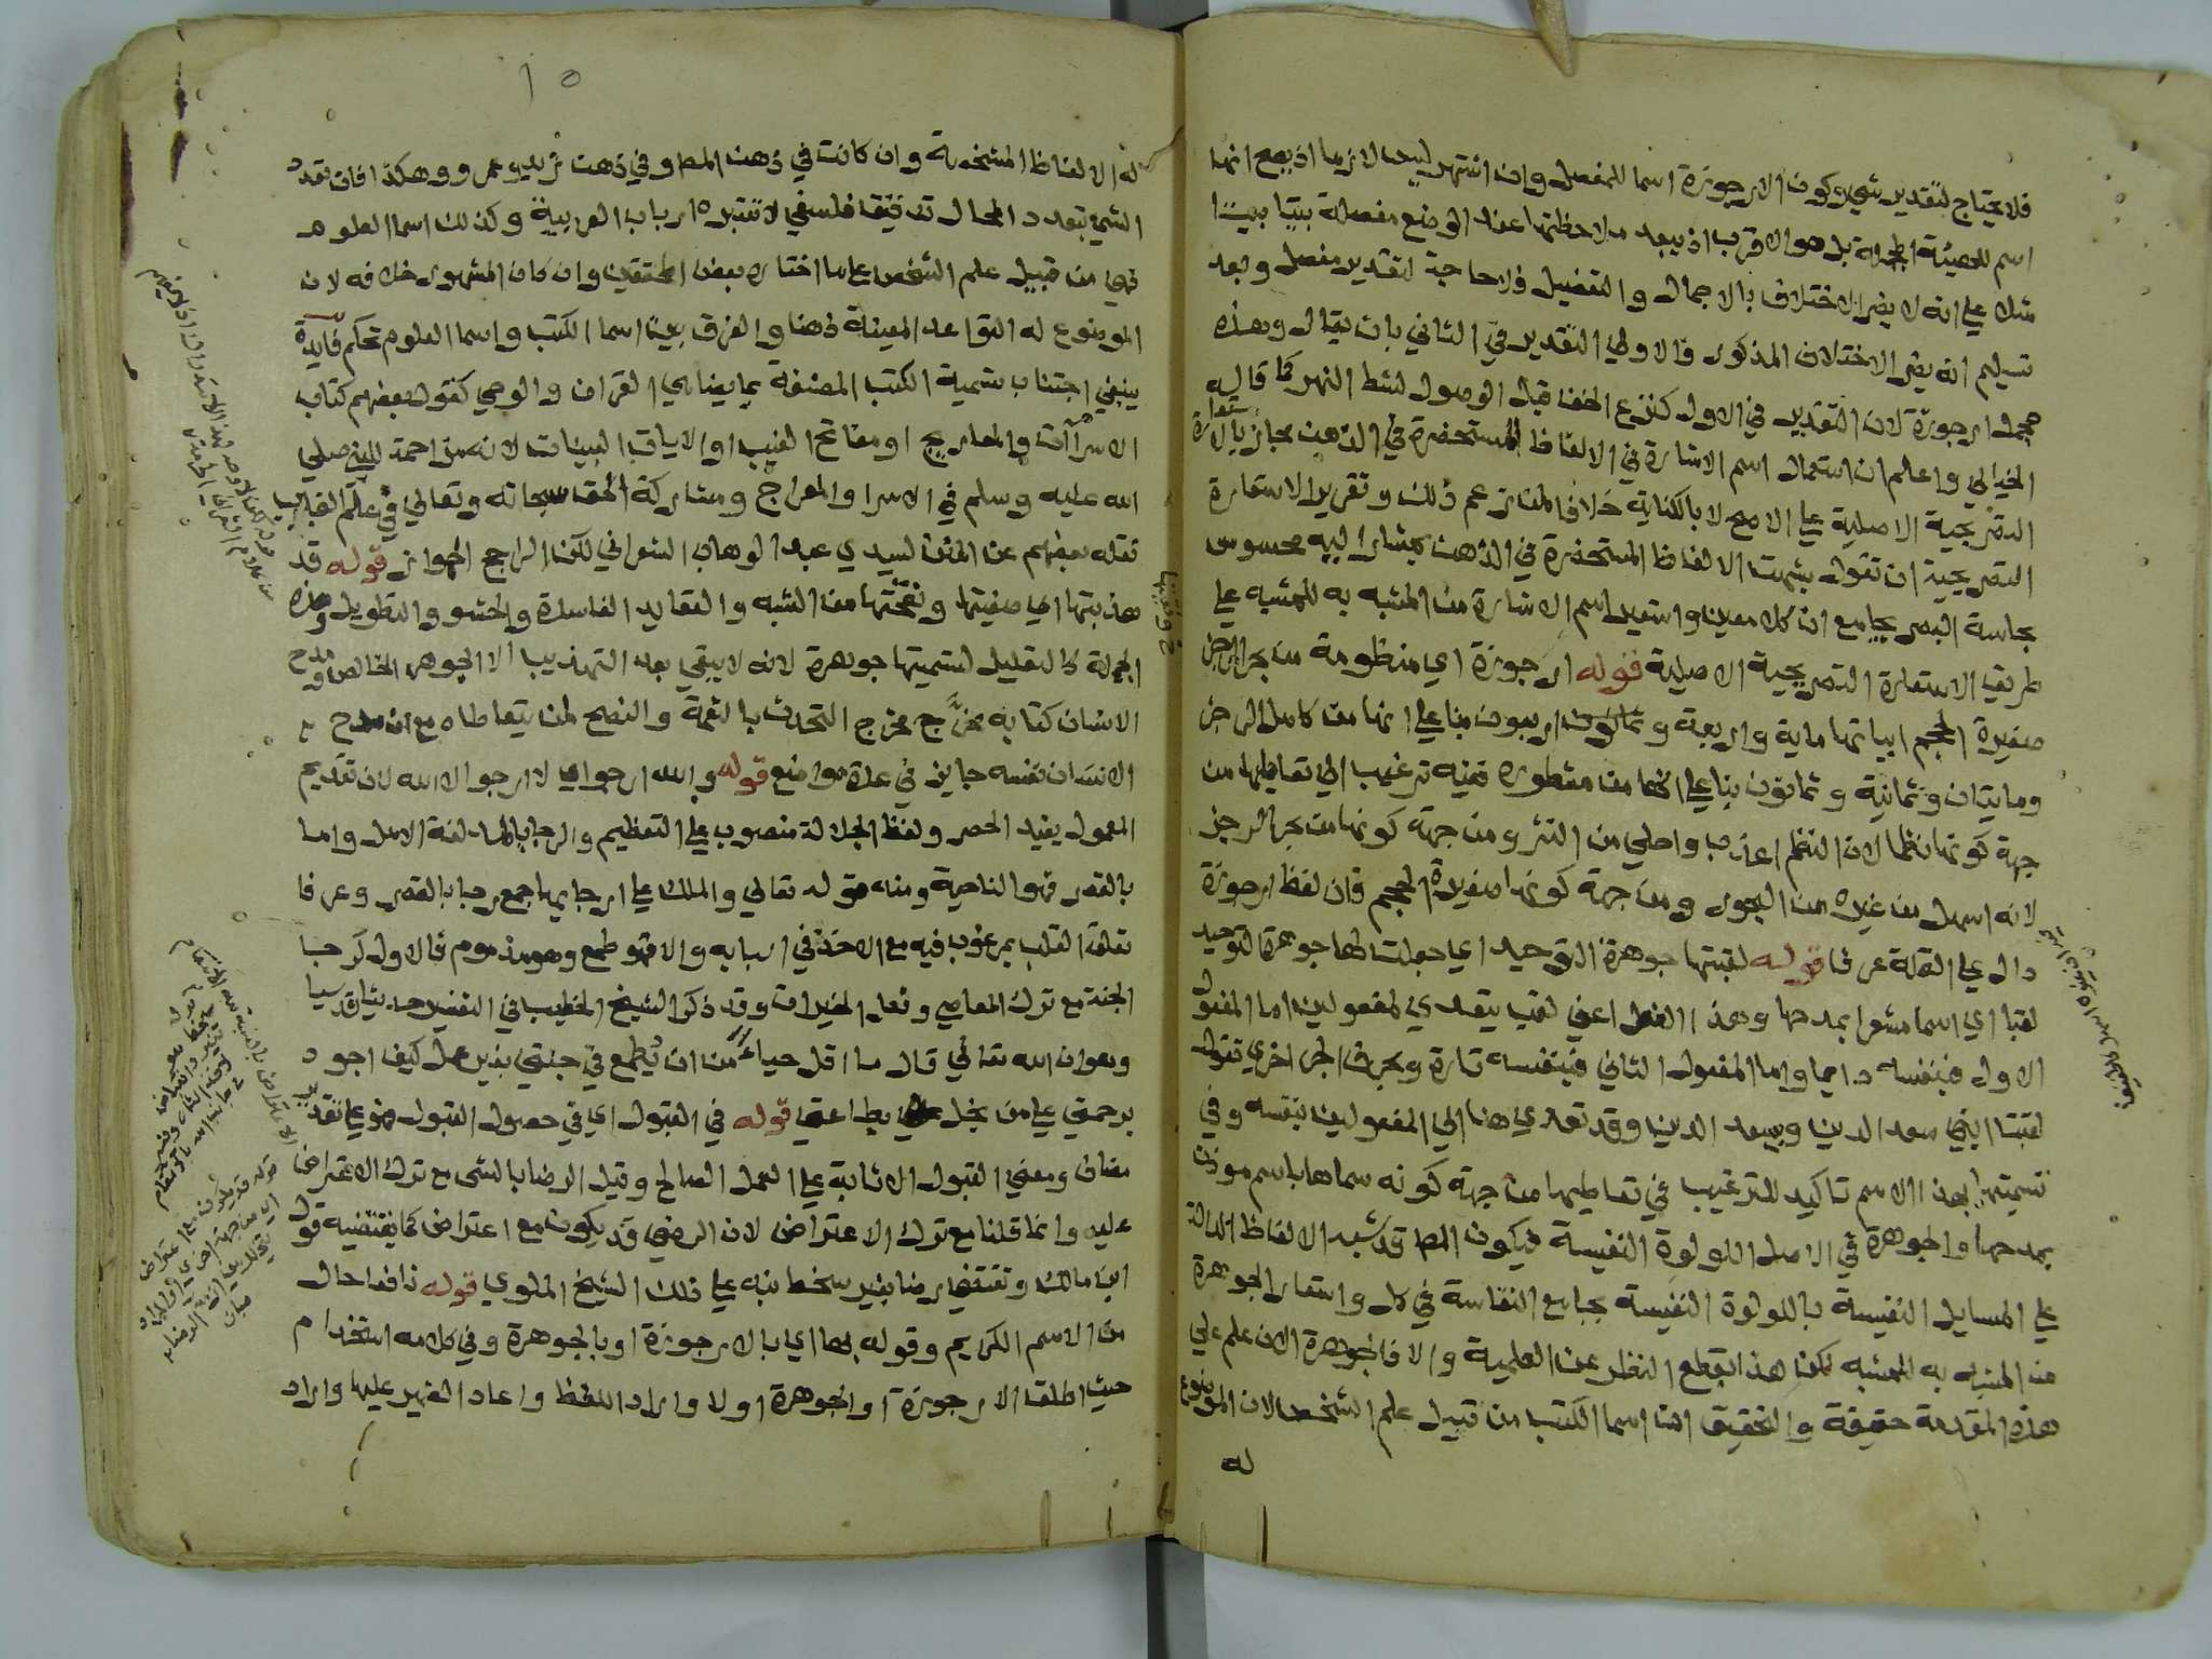 فلا يحتاج لتقدير شيء وكون الارجوزة اسما للمفصل وان اشتهر ليس لازما اذ يصح انها
اسم للهيئة المجملة بل هو الاقرب اذ يبعد ملاحظتها عند الوضع مفصلة بيتا بيتا
مثلا على انه لا يضر الاختلاف بالاجمال والتفصيل فلا حاجة لتقدير مفصل وبعد
تسليم انه يضر الاختلاف المذكور فالاولى التقدير في الثاني بان يقال وهذه
مجمل ارجوزة لان التقدير في الاول كنزع الخف قبل الوصول لشط النهر كما قاله
الخيالي واعلم ان استعمال اسم الاشارة في الالفاظ المستحضرة في الذهن مجاز بالاستعارة
التصريحية الاصلية على الاصح لا بالكناية خلافا لمن زعم ذلك وتقرير الاستعارة
التصريحية ان تقول شبهت الالفاظ المستحضرة في الذهن بمشار اليه محسوس
بحاسة البصر بجامع ان كلا معين واستعير اسم الاشارة من المشبه به للمشبه على
طريق الاستعارة التصريحية الاصلية قوله ارجوزة اي منظومة من بحر الرجز
صغيرة الحجم ابياتها ماية واربعة واربعون بنا على انها من كامل الرجز
ومايتان وثمانية وثمانون بنا على انها من مشطوره ففيه ترغيب الى تعاطيها من
جهة كونها نظما لان النظم اعذب واحلى من النثر ومن جهة كونها من بحر الرجز
لانه اسهل من غيره من البحور ومن جهة كونها صغيرة الحجم فان لفظ ارجوزة
دال على القلة عرفا قوله لقبتها جوهرة التوحيد اي جعلت لها جوهرة التوحيد
لقبا اي اسما مشعرا بمدحها وهذا الفعل اعني لقب يتعدي لمفعولين اما المفعول
الاول فبنفسه دايما واما المفعول الثاني فبنفسه تارة وبحرف الجر اخري تقول
لقبت ابني سعد الدين وبسعد الدين وقد تعدي هنا الي المفعولين بنفسه وفي
تسميتها بهذا الاسم تاكيد للترغيب في تعاطيها من جهة كونه سماها باسم موذن
بمدحها والجوهرة في الاصل اللولوة النفيسة فيكون المص قد شبه الالفاظ الدالة
على المسايل النفيسة باللولوة النفيسة بجامع النفاسة في كل واستعار الجوهرة
من المشبه به للمشبه لكن هذا بقطع النظر عن العلمية والا فالجوهرة الان علم على
هذه المقدمة حقيقة والتحقيق ان اسما الكتب من قبيل علم الشخص لان الموضوع
له
١٥
له الالفاظ المشخصة وان كانت في ذهن المص وفي ذهن زيد وعمرو وهكذا فان تعدد
الشي بتعدد المحال تدقيق فلسفي لا تعتبره ارباب العربية وكذلك اسما العلوم
فهي من قبيل علم الشخص على ما اختاره بعض المحققين وان كان المشهور خلافه لان
الموضوع له القواعد المعينة ذهنا والفرق بين اسما الكتب واسما العلوم تحكم فايدة
ينبغي اجتناب تسمية الكتب المصنفة بما يضاهي القران والوحي كقول بعضهم كتاب
الاسراآت والمعاريج او مفاتح الغيب او الايات البينات لانه مزاحمة للنبي صلى
الله عليه وسلم في الاسرا والمعراج ومشاركة الحق سبحانه وتعالي في علم الغيب
نقله بعضهم عن المنن لسيدي عبد الوهاب الشعراني لكن الراجح الجواز قوله قد
هذبتها اي صفيتها ونقحتها من الشبه والعقايد الفاسدة والحشو والتطويل وهذه
الجملة كالتعليل لتسميتها جوهرة لانه لا يبقي بعد التهذيب الا الجوهر الخالص ومدح
الانسان كتابه مخرَّج مخرج التحدث بالنعمة والنصح لمن يتعاطاه مع ان مدح
الانسان نفسه جايز في عدة مواضع قوله والله ارجو اي لا ارجو الا الله لان تقديم
المعمول يفيد الحصر ولفظ الجلالة منصوب على التعظيم والرجا بالمد لغة الامل واما
بالقصر فهو الناحية ومنه قوله تعالي والملك على ارجايها جمع رجا بالقصر وعرفا
تعلق القلب بمرغوب فيه مع الاخذ في اسبابه والا فهو طمع وهو مذموم فالاول كرجا
الجنة مع ترك المعاصي وفعل الخيرات وقد ذكر الشيخ الخطيب في التفسير حديثا قدسيا
وهو ان الله تعالي قال ما اقل حياءً من ان يُطمع في جنتي بغير عمل كيف اجود
برحمتي على من بخل علي بطاعتي قوله في القبول اي في حصول القبول فهو على تقدير
مضاف ومعني القبول الاثابة على العمل الصالح وقيل الرضا بالشي مع ترك الاعتراض
عليه وانما قلنا مع ترك الاعتراض لان الرضي قد يكون مع اعتراض كما يقتضيه قول
ابن مالك وتقتضي رضا بغير سخط نبه على ذلك الشيخ الملوي قوله نافعا حال
من الاسم الكريم وقوله بها اي بالارجوزة او بالجوهرة وفي كلامه استخدام
حيث اطلق الارجوزة او الجوهرة اولا واراد اللفظ واعاد الضمير عليها واراد